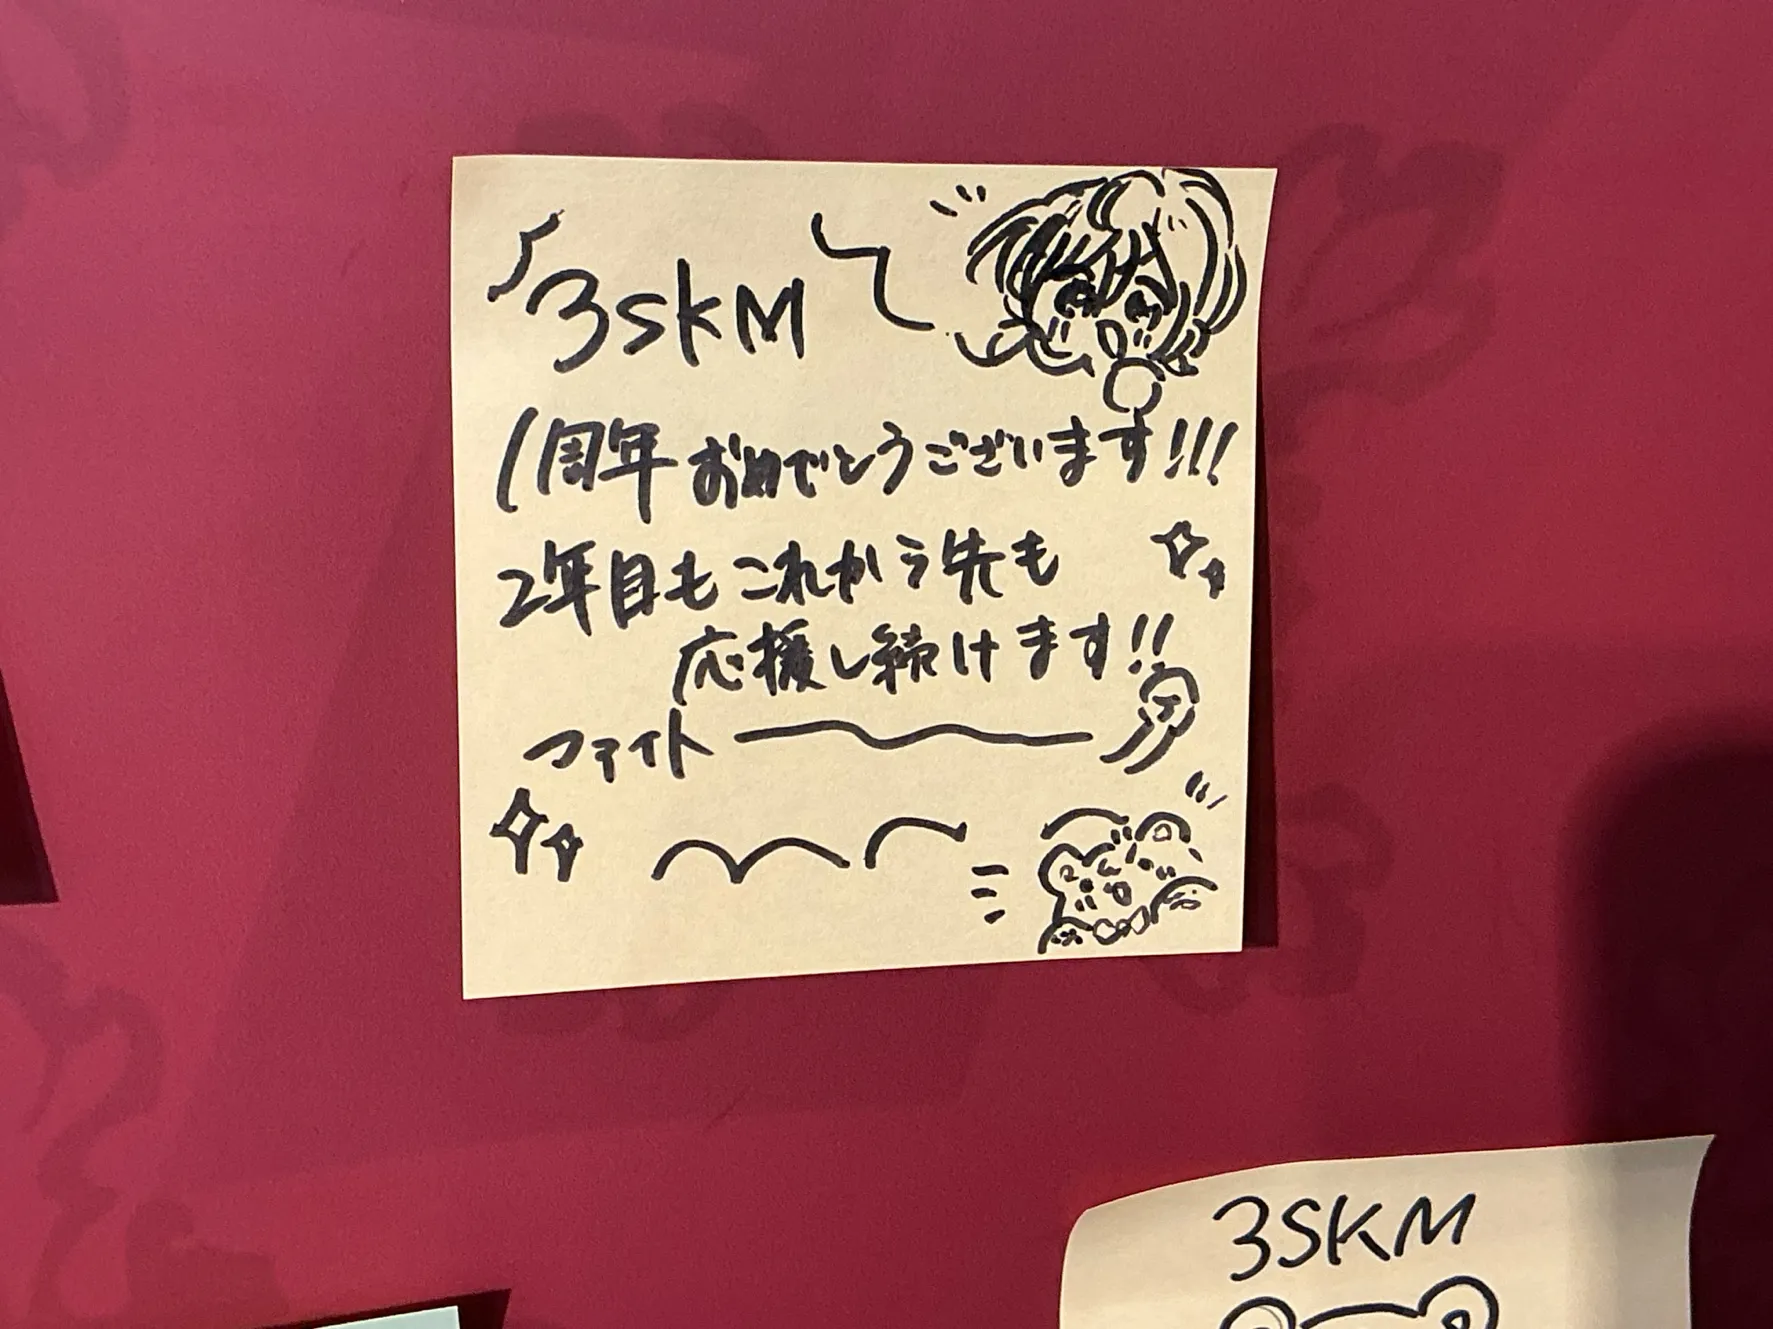 3SKM
1周年おめでとうございます!!!
2年目もこれから先も
応援し続けます!!
ファイト〜
3SKM